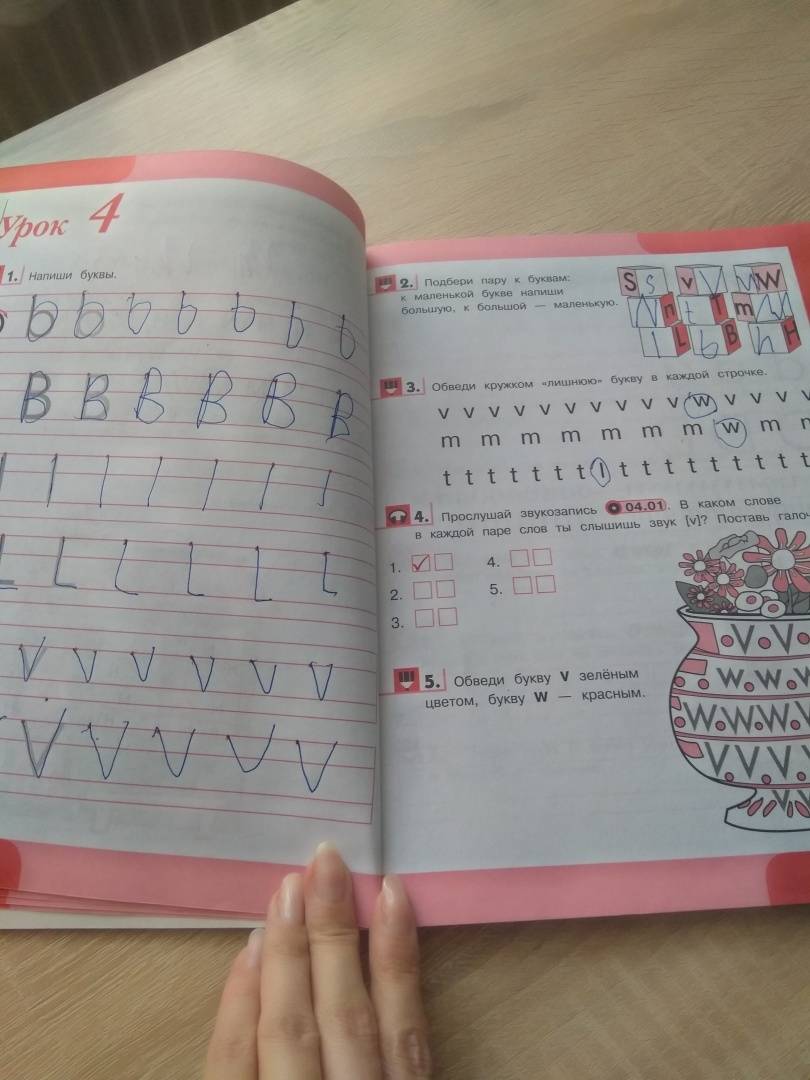 Урок 4
1. Напиши буквы.
b b b b b b b
B B B B B B B
l l l l l l l
L L L L L L L
v v v v v v
V V V V V
2. Подбери пару к буквам:
к маленькой букве напиши
большую, к большой — маленькую.
S s v V w W
N n t T m M
l L b B h H
3. Обведи кружком «лишнюю» букву в каждой строчке.
v v v v v v v v v v w v v v v
m m m m m m m w m m
t t t t t t t l t t t t t t t t t
4. Прослушай звукозапись 04.01. В каком слове
в каждой паре слов ты слышишь звук [v]? Поставь галоч
1. ✓ 4.
2. 5.
3.
5. Обведи букву V зелёным
цветом, букву W — красным.
V V
W W W
W W W W
V V V V
V V